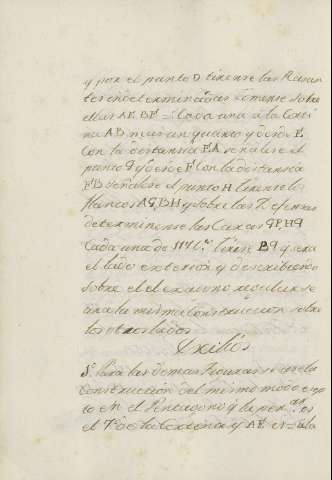 y por el punto D tirense las Rasan
tes indeterminadas tomense sobre
ellas AE. BF = Cada una á la Corti
na AB menos un quarto y desde E
Con la distansia EA señalese el
punto G y desde F Con la distansia
FB señalese el punto H tirense los
flancos AG, BH y sobre las Defensas
determinense las Caras GP, HQ
Cada una de tirese y sera
el lado exterior y describiendo
sobre el el exagono regular se
ara la misma Construccion sobre
los otros lados
S. Para las demas figuras se ara la
Construccion del mismo modo esep
to en el Pentagono q la es
el de la Cortina y AE =